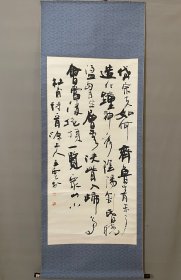 岱宗夫如何齊魯青未了
造化鍾神秀陰陽割昏曉
盪胸生曾雲決眥入歸鳥
會當凌絕頂一覽眾山小
杜甫詩